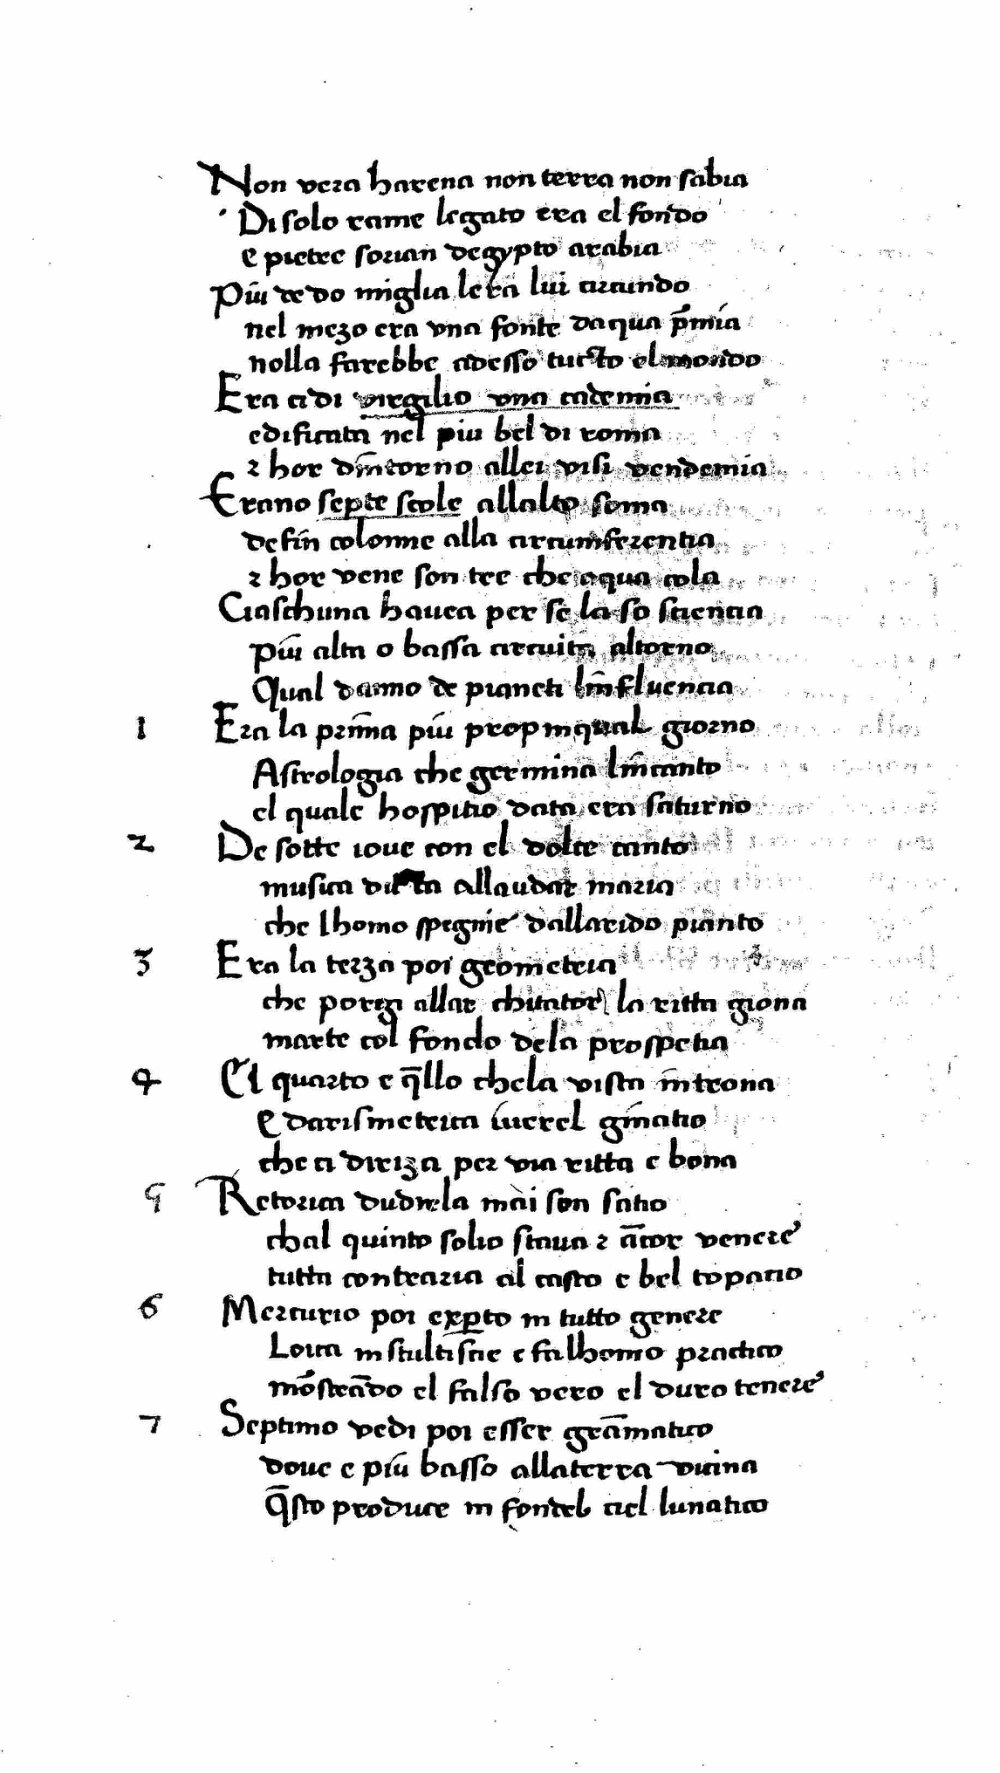 Non vera harena non terra non sabia
Di solo rame legato era el fondo
e pietre sorian degypto arabia
Piú de do miglia lera lui circundo
nel mezo era una fonte daqua p̄mía
nolla farebbe adesso tucto el mondo
Era ci di virgilio una cademia
edificata nel piu bel di roma
z hor dīntorno allei visi vendemia
Erano septe scole allalto soma
de fín colonne alla circumferentia
z hor vene son tre che aqua cola
Ciaschuna havea per se la so sciencia
piú alta o bassa circuita altorno
Qual danno de pianeti līnfluencia
1 Era la príma piú propinqual giorno
Astrologia che germina līncanto
el quale hospitio data era saturno
2 De sotte iove con el dolce canto
musica allaudar maria
che lhomo spegnie dallarido pianto
3 Era la terza poi geometria
che porgi allar la ritta giona
marte col fondo dela prospetia
4 El quarto e q̄llo chela vista īntrona
e darismetrica gīnatio
che ci diriza per via ritta e bona
5 Retorica dudirela mai son satio
chal quinto solio stava z āctor venere
tutta contraria al casto e bel topacio
6 Mercurio poi exp̱to in tutto genere
Loica in stultiscie e fa lhomo practico
mōstrādo el falso vero el duro tenere
7 Septimo vedi poi esser grāmatico
dove e piú basso alla terra vicina
q̄sto produce in fondel ciel lunatico